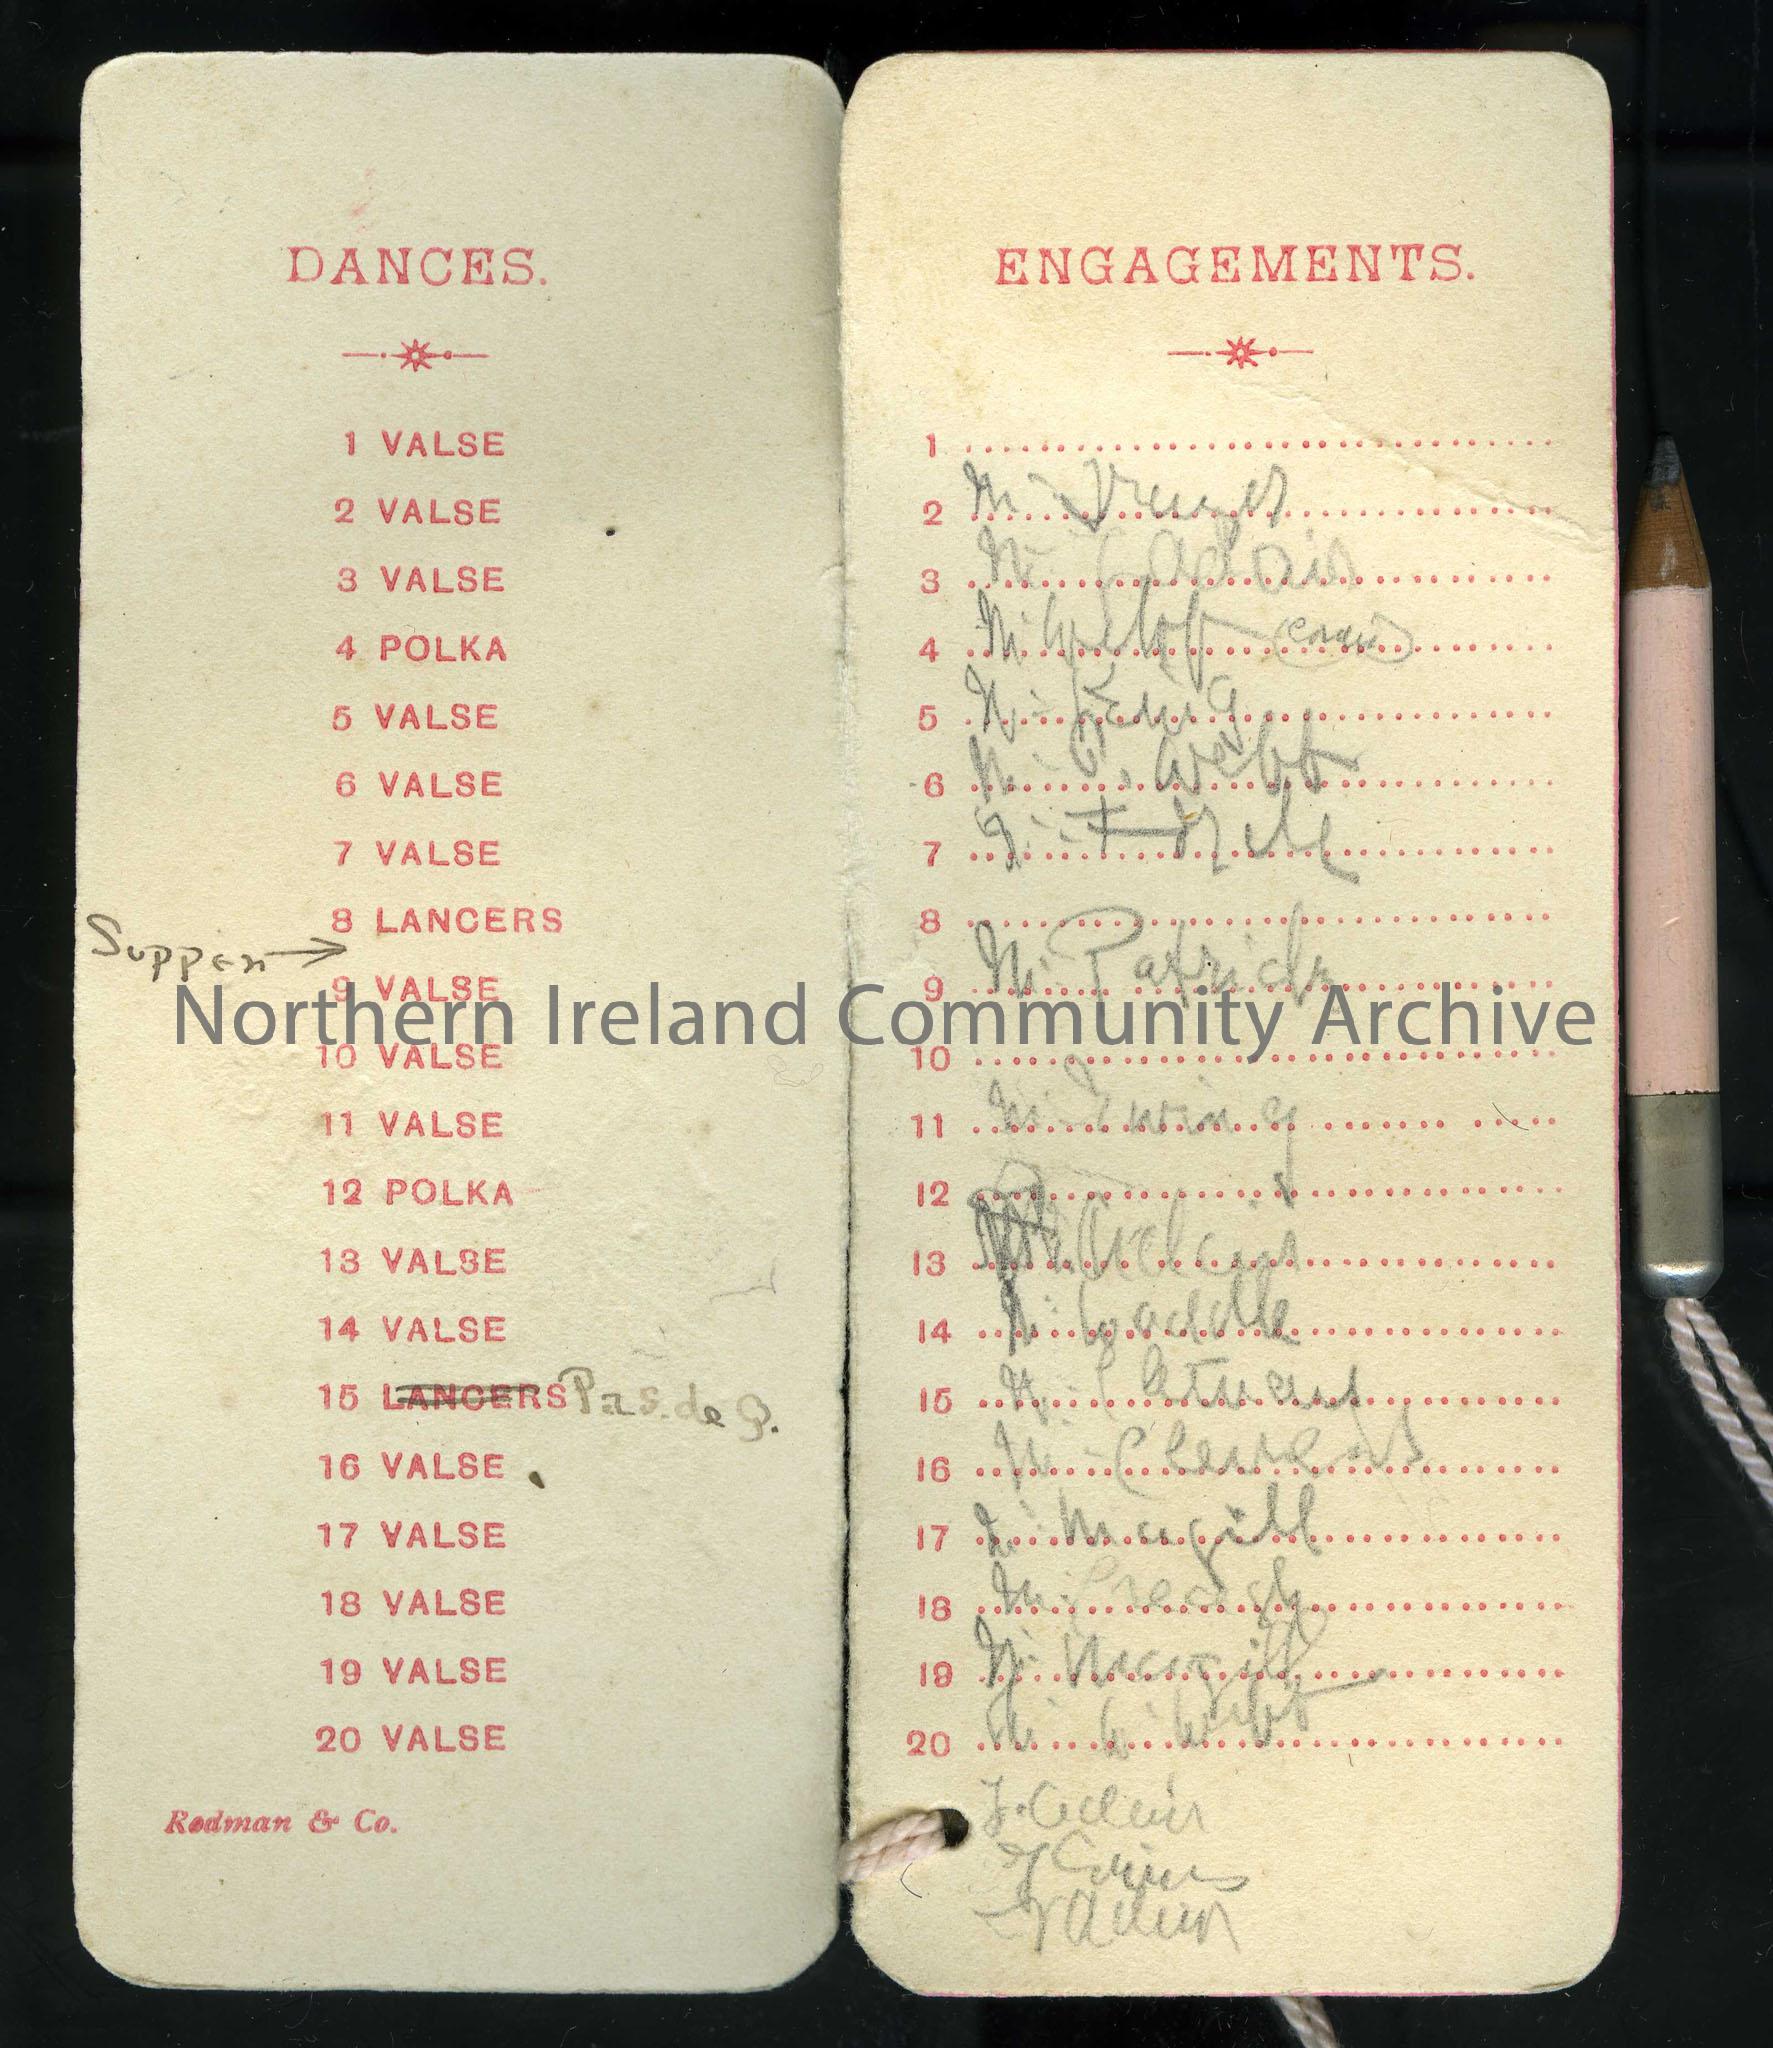 DANCES.
1 VALSE
2 VALSE
3 VALSE
4 POLKA
5 VALSE
6 VALSE
7 VALSE
8 LANCERS
Supper
9 VALSE
10 VALSE
11 VALSE
12 POLKA
13 VALSE
14 VALSE
15 LANCERS Pas. de Q.
16 VALSE
17 VALSE
18 VALSE
19 VALSE
20 VALSE
Rodman & Co.
ENGAGEMENTS.
1
2 Mr
3 Mr Adair
4 Mr
5 Mr King
6 Mr Webb
7
8
9 Mr Patrick
10
11 Mr Ewing
12
13 Adair
14 Mr Waddle
15 Mr
16 Mr
17 Magill
18 Mr
19 Mr Magill
20 Mr
J. Adair
Adair
Northern Ireland Community Archive